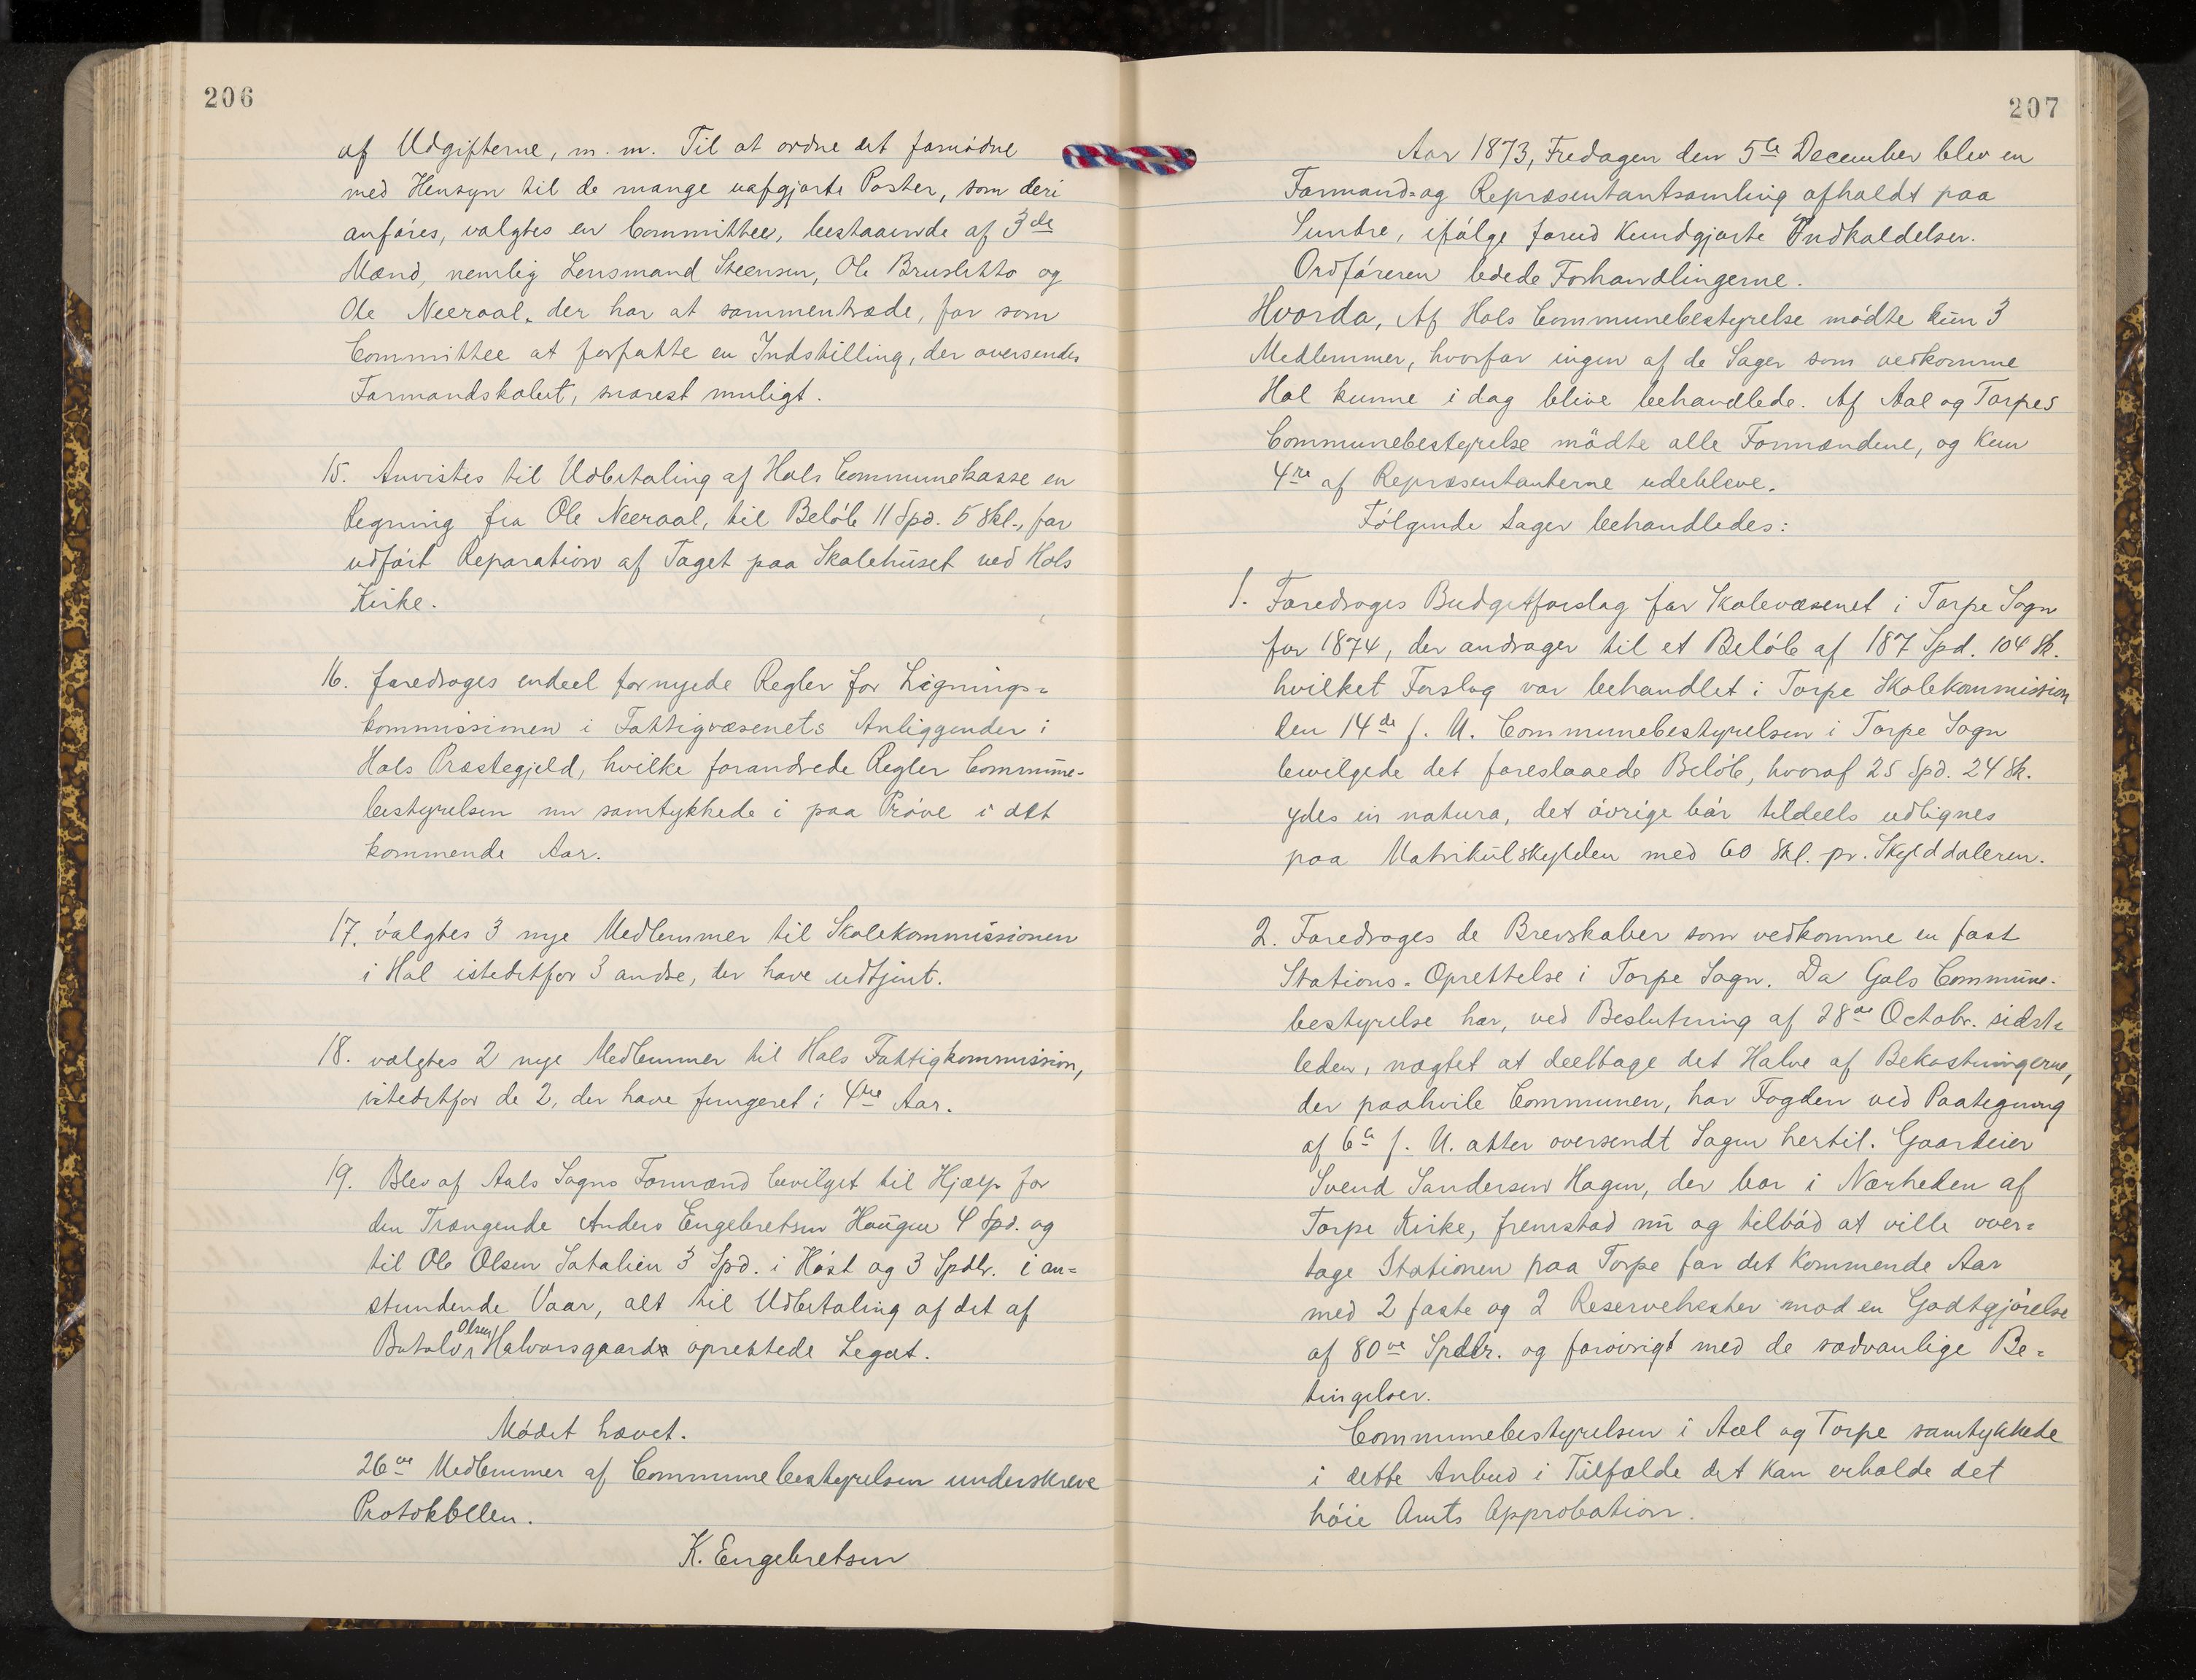 206
af Udgifterne, m. m. Til at ordne det fornødne
med Hensyn til de mange uafgjorte Poster, som deri
anføres, valgtes en Committee, bestaaende af 3de
Mænd, nemlig Lensmand Steensen, Ole Brusletto og
Ole Neeraal, der har at sammentræde, for som
Committee at forfatte en Indstilling, der oversendes
Formandskabet, snarest muligt.
15. Anvistes til Udbetaling af Hols Communekasse en
Regning fra Ole Neeraal, til Beløb 11 Spd. 5 Skl., for
udført Reparation af Taget paa Skolehuset ved Hols
Kirke.
16. foredroges endeel fornyede Regler for Lignings=
kommissionen i Fattigvæsenets Anliggender i
Hols Præstegjeld, hvilke forandrede Regler Commune-
bestyrelsen nu samtykkede i paa Prøve i det
kommende Aar.
17. valgtes 3 nye Medlemmer til Skolekommissionen
i Hol istedetfor 3 andre, der have udtjent.
18. valgtes 2 nye Medlemmer til Hols Fattigkommission,
istedetfor de 2, der have fungeret i 4re Aar.
19. Blev af Aals Sogns Formænd bevilget til Hjælp for
den Trængende Anders Engebretsen Haugen 4 Spd. og
til Ole Olsen Satalien 3 Spd. i Høst og 3 Spdlr. i an=
stundende Vaar, alt til Udbetaling af det af
Botolv Olsen Halvorsgaard oprettede Legat.
Mødet hævet.
26ve Medlemmer af Communebestyrelsen underskreve
Protokollen.
K. Engebretsen
207
Aar 1873, Fredagen den 5te December blev en
Formand= og Repræsentantsamling afholdt paa
Sundre, ifølge forud Kundgjorte Indkaldelser.
Ordføreren ledede Forhandlingerne.
Hvorda, Af Hols Communebestyrelse mødte kun 3
Medlemmer, hvorfor ingen af de Sager som vedkomme
Hol kunne i dag blive behandlede. Af Aal og Torpes
Communebestyrelse mödte alle Formændene, og Kun
4re af Repræsentanterne udebleve.
Følgende Sager behandledes:
1. Foredroges Budgetforslag for Skolevæsenet i Torpe Sogn
for 1874, der andrager til et Beløb af 187 Spd. 104 Sk.
hvilket Forslag var behandlet i Torpe Skolekommission
den 14de f. M. Communebestyrelsen i Torpe Sogn
bevilgede det foreslaaede Beløb, hvoraf 25 Spd. 24 Sk.
ydes in natura, det øvrige bør tildeels udlignes
paa Matrikulskylden med 60 Skl. pr. Skylddaleren.
2. Foredroges de Brevskaber som vedkomme en fast
Stations-Oprettelse i Torpe Sogn. Da Gols Commune-
bestyrelse har, ved Beslutning af 28de Octobr. sidst=
leden, nægtet at deeltage det Halve af Bekostningerne,
der paahvile Communen, har Fogden ved Paategning
af 6te f. M. atter oversendt Sagen hertil. Gaardeier
Svend Sandersen Hagen, der bor i Nærheden af
Torpe Kirke, fremstod nu og tilbød at ville over=
tage Stationen paa Torpe for det Kommende Aar
med 2 faste og 2 Reservehester mod en Godtgjørelse
af 80ve Spdlr. og forøvrigt med de sædvanlige Be=
tingelser.
Communebestyrelsen i Aal og Torpe samtykkede
i dette Anbud i Tilfælde det Kan erholde det
høie Amts Approbation.